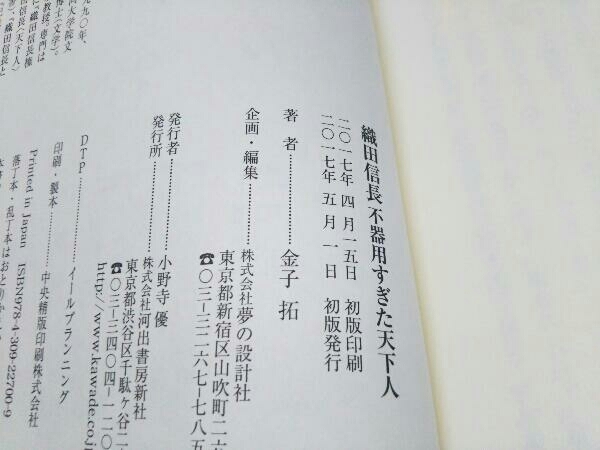 織田信長 不器用すぎた天下人
二〇一七年 四 月一五日 初版印刷
二〇一七年 五 月 一 日 初版発行
著 者………金子 拓
企画・編集………株式会社夢の設計社
東京都新宿区山吹町二六
☎〇三―三二六七―七八五
発行者………小野寺 優
発行所………株式会社河出書房新社
東京都渋谷区千駄ヶ谷二
☎〇三―三四〇四―一二〇
http://www.kawade.co.jp
DTP………イールプランニング
印刷・製本………中央精版印刷株式会社
Printed in Japan ISBN978-4-309-22700-9
落丁本・乱丁本はおとりかえ
九九〇年、
大学院文
博士（文学）。
教授。専門は
『織田信長権
信長〈天下人〉